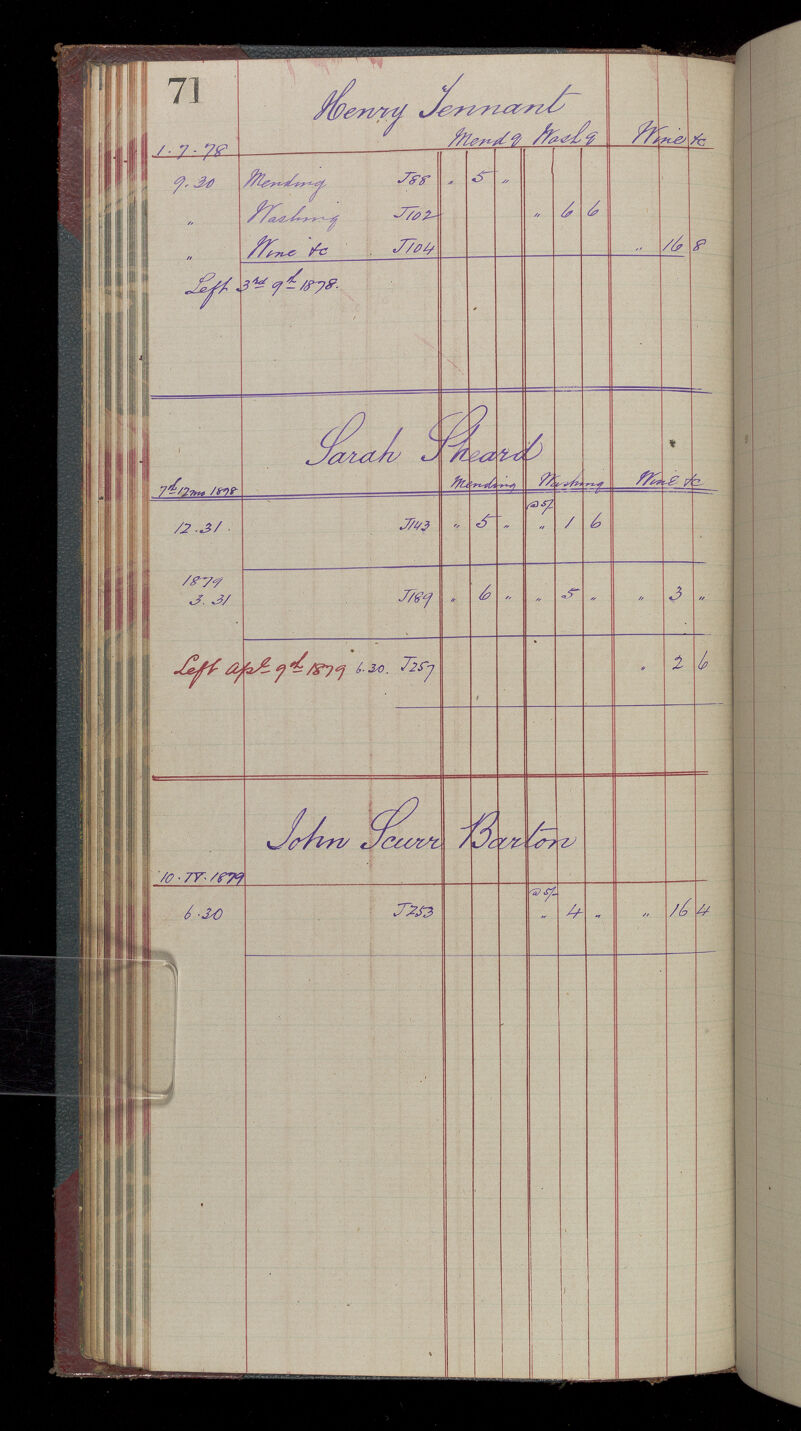 71
Henry Tennant
1.7.78 Mendg Washg Wine &c
9.30 Mending J88 " 5 "
" Washing J102 " 6 6
" Wine &c J104 " 16 8
Left 3rd 9th 1878.
Sarah Sheard
7th 12mo 1878 Mending Washing Wine &c
@5/-
12.31. J143 " 5 " " 1 6
1879
3.31 J189 " 6 " " 5 " " 3 "
Left Apl 9th 1879 6.30. J257 " 2 6
John Scurr Barton
10.IV.1879
@5/-
6.30 J253 " 4 " " 16 4